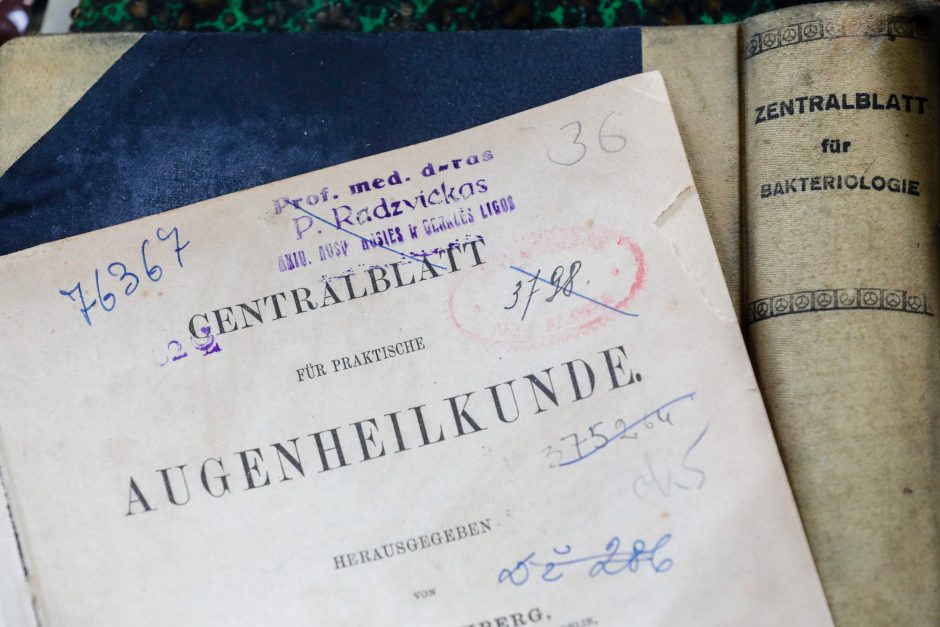 36
Prof. med. d-ras
P. Radzvickas
AKIŲ, AUSŲ NOSIES ir GERKLĖS LIGOS
76367
CENTRALBLATT
3798.
FÜR PRAKTISCHE
AUGENHEILKUNDE.
375264
HERAUSGEGEBEN
286
VON
BERG,
ZENTRALBLATT
für
BAKTERIOLOGIE